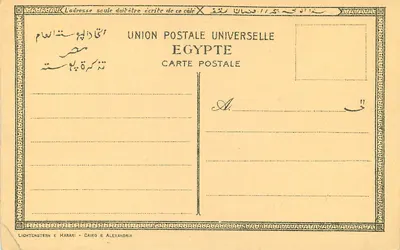 L'adresse seule doit être écrite de ce côté
UNION POSTALE UNIVERSELLE
EGYPTE
CARTE POSTALE
اتحاد البوسته العام
مصر
تذكرة بوسته
A.
LICHTENSTERN & HARARI - CAIRO & ALEXANDRIA